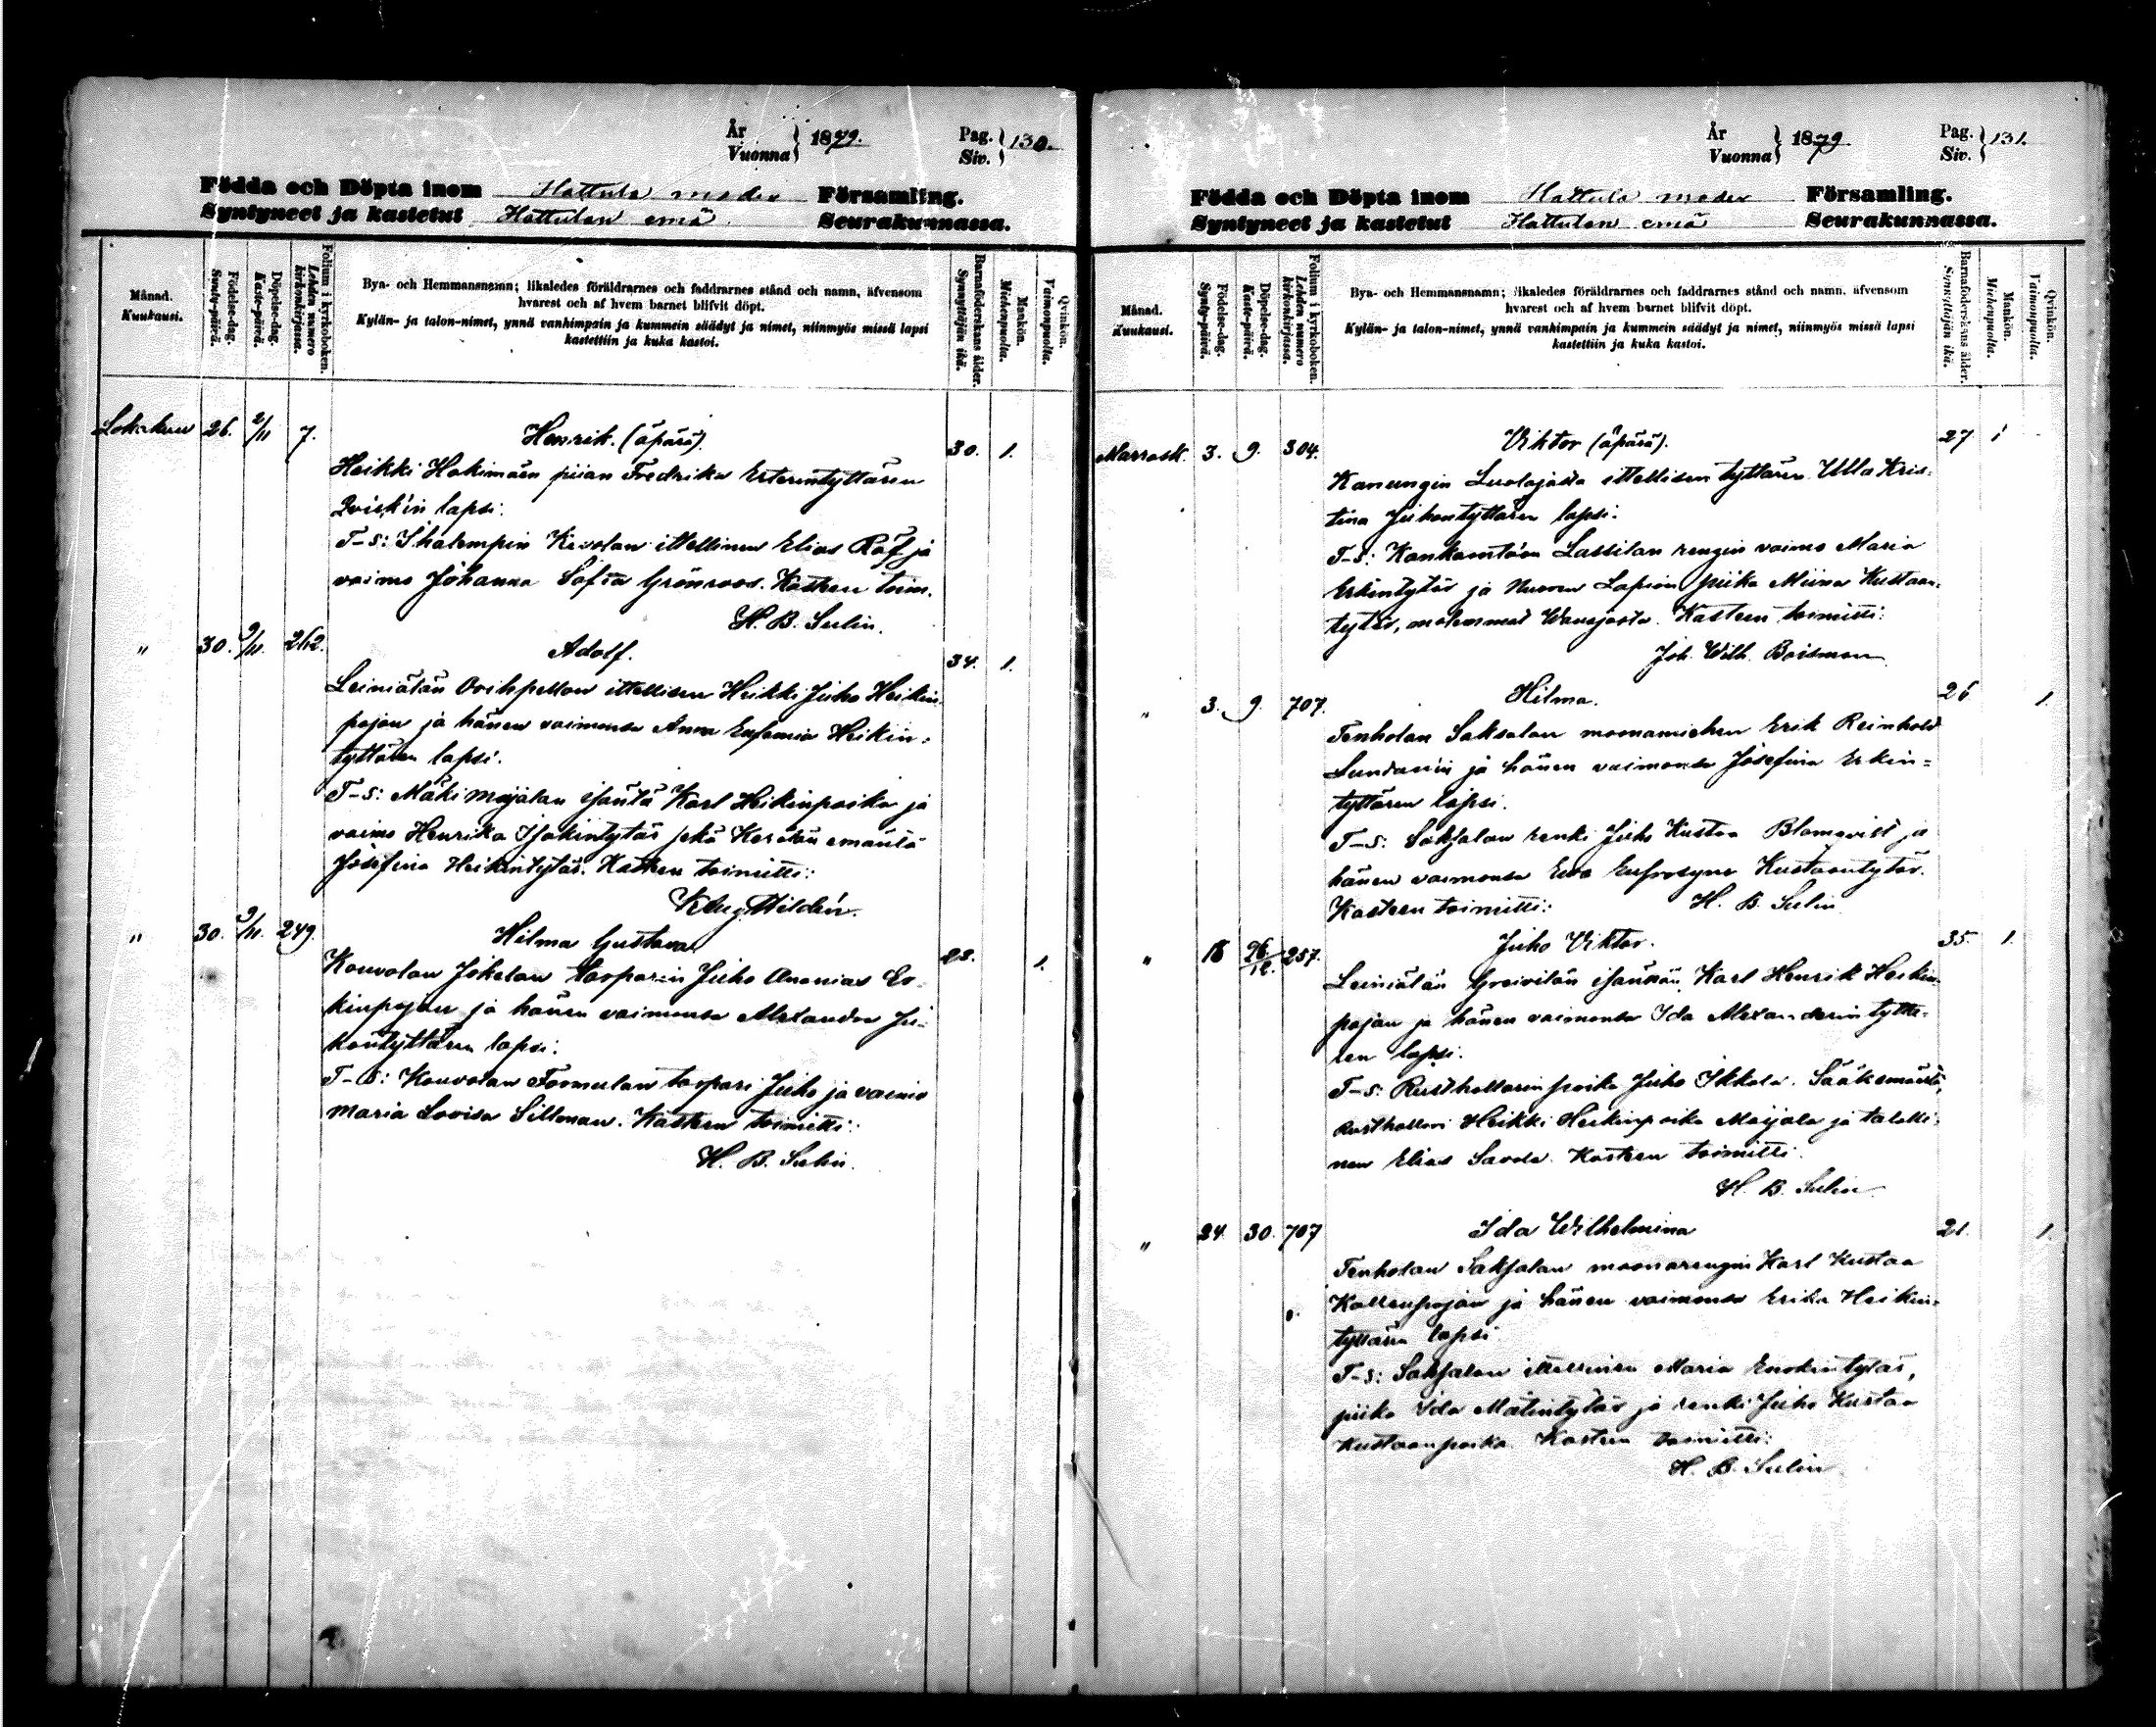 År
Vuonna } 1879.
Pag.
Siv. } 130.
Födda och Döpta inom Hattula moder Församling.
Syntyneet ja kastetut Hattulan emä Seurakunnassa.
Månad.
Kuukausi.
Födelse-dag.
Synty-päivä.
Döpelse-dag.
Kaste-päivä.
Folium i kyrkoboken.
Lehden numero
kirkonkirjassa.
Bya- och Hemmansnamn; likaledes föräldrarnes och faddrarnes stånd och namn, äfvensom
hvarest och af hvem barnet blifvit döpt.
Kylän- ja talon-nimet, ynnä vanhimpain ja kummein säädyt ja nimet, niinmyös missä lapsi
kastettiin ja kuka kastoi.
Barnaföderskans ålder.
Synnyttäjän ikä.
Mankön.
Miehenpuolta.
Qvinkön.
Vaimonpuolta.
Lokakuu 26. 2/11 7. Henrik. (äpärä). 30. 1.
Heikki Hakimäen piian Fredrika
lapsi.
T-s: Ihalempin ittellinen Elias Räf ja
vaimo Johanna Sofia Grönroos. Kasteen toim.
H. B. Sulin.
" 30. 9/11. 262. Adolf. 34. 1.
Leiniälän ittellisen Heikki Juho Heikin
pojan ja hänen vaimonsa Anna Eufemia Heikin-
tyttären lapsi.
T-s: Mäki Maijalan isäntä Karl Heikinpoika ja
vaimo Henrika Isakintytär sekä emäntä
Josefina Heikintytär. Kasteen toimitti:
" 30. 9/11. 249. Hilma Gustava 23. 1.
Kouvolan Jokelan torparin Juho Ananias Er-
kinpojan ja hänen vaimonsa Alexandra Ju-
hontyttären lapsi.
T-s: Kouvolan torpari Juho ja vaimo
Maria Lovisa Sillman. Kasteen toimitti:
H. B. Sulin.
År
Vuonna } 1879
Pag.
Siv. } 131.
Födda och Döpta inom Hattula moder Församling.
Syntyneet ja kastetut Hattulan emä Seurakunnassa.
Månad.
Kuukausi.
Födelse-dag.
Synty-päivä.
Döpelse-dag.
Kaste-päivä.
Folium i kyrkoboken.
Lehden numero
kirkonkirjassa.
Bya- och Hemmansnamn; likaledes föräldrarnes och faddrarnes stånd och namn, äfvensom
hvarest och af hvem barnet blifvit döpt.
Kylän- ja talon-nimet, ynnä vanhimpain ja kummein säädyt ja nimet, niinmyös missä lapsi
kastettiin ja kuka kastoi.
Barnaföderskans ålder.
Synnyttäjän ikä.
Mankön.
Miehenpuolta.
Qvinkön.
Vaimonpuolta.
Marrask. 3. 9. 304. Viktor (äpärä). 27 1
Kanungin Luolajasta ittellisen tyttären Ulla Kris-
tina Juhontyttären lapsi.
T-s: Kankaantaan Lassilan rengin vaimo Maria
Erkintytär ja piika Miina Kustaan-
tytär, molemmat Wanajasta. Kasteen toimitti:
Joh. Wilh. Boisman
" 3. 9. 707. Hilma. 26 1.
Tenholan Saksalan moonamiehen Erik Reinhold
ja hänen vaimonsa Josefina Erkin-
tyttären lapsi.
T-s: Saksalan renki Juho Kustaa Blomqvist ja
hänen vaimonsa Eva Eufrosyne Kustaantytär.
Kasteen toimitti: H. B. Sulin
" 18 26/12. 257. Juho Viktor. 35. 1.
Leiniälän isännän Karl Henrik Heikin-
pojan ja hänen vaimonsa Ida Alexanderin tyttä-
ren lapsi.
T-s: Rusthollarin poika Juho Ikkala Sääksmäestä,
Rusthollari Heikki Heikinpoika Maijala ja talolli-
nen Elias Kasteen toimitti.
H. B. Sulin
" 24. 30. 707 Ida Wilhelmina 21. 1.
Tenholan Saksalan moonarengin Karl Kustaa
Kallenpojan ja hänen vaimonsa Erika Heikin-
tyttären lapsi
T-s: Saksalan ittellinen Maria Enokintytär,
piika Ida Matintytär ja renki Juho Kustaa
Kustaanpoika. Kasteen toimitti:
H. B. Sulin